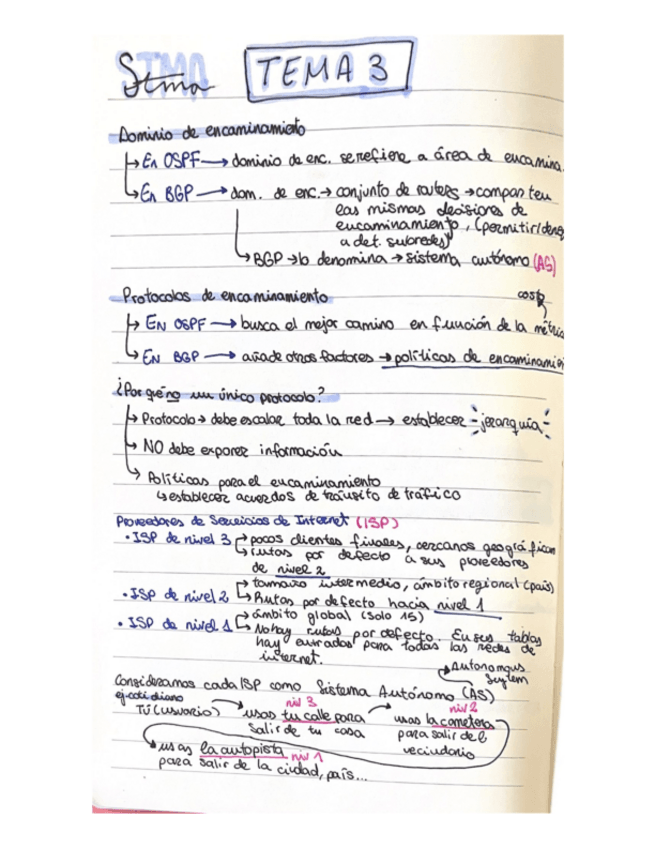 STMA
Stma
TEMA 3
Dominio de encaminamiento
↳ En OSPF → dominio de enc. se refiere a área de encamina.
↳ En BGP → dom. de enc. → conjunto de routers → comparten
las mismas decisiones de
encaminamiento, (permitir/deneg
a det. subredes)
↳ BGP → lo denomina → sistema autónomo (AS)
Protocolos de encaminamiento
coste
↳ EN OSPF → busca el mejor camino en función de la métric
↳ EN BGP → añade otros factores → políticas de encaminamien
¿Por qué no un único protocolo?
↳ Protocolo → debe escalar toda la red → establecer jerarquía
↳ NO debe exponer información
↳ Políticas para el encaminamiento
↳ establecer acuerdos de tránsito de tráfico
Proveedores de Servicios de Internet (ISP)
• ISP de nivel 3 → pocos clientes finales, cercanos geográfican
↳ rutas por defecto a sus proveedores
de nivel 2
→ tamaño intermedio, ámbito regional (país)
• ISP de nivel 2 ↳ Rutas por defecto hacia nivel 1
→ ámbito global (solo 15)
• ISP de nivel 1 ↳ No hay rutas por defecto. En sus tablas
hay entradas para todas las redes de
internet.
Autonomous
System
Consideramos cada ISP como Sistema Autónomo (AS)
ej. cotidiano
niv 3
niv 2
TÚ (usuario) → usas tu calle para → usas la carretera
salir de tu casa
para salir del
vecindario
usas la autopista niv 1
para salir de la ciudad, país...